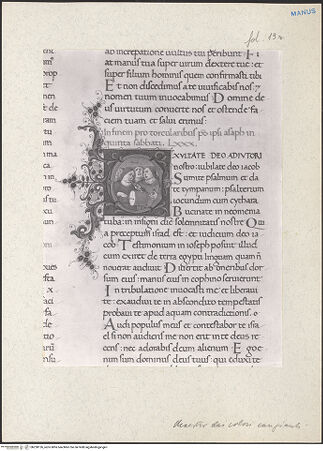 fol. 13r
MANUS
ab increpatione vultus tui peribunt Fi
at manus tua super virum dextere tue: et
super filium hominis quem confirmasti tibi
Et non discedimus a te vivificabis nos: 7
nomen tuum invocabimus Domine de
us virtutum converte nos et ostende fa
ciem tuam et salvi erimus:
In finem pro torcularibus ps ipsi asaph in
quinta sabbati. LXXX.
EXVLTATE DEO ADIVTORI
nostro: iubilate deo iacob
Sumite psalmum et da
te tympanum: psalterium
iocundum cum cythara
Bucinate in neomenia
tuba: in insigni die solennitatis nostre Q
a preceptum israel est: et iudicium deo ia
cob Testimonium in ioseph posuit illud
cum exiret de terra egypti linguam quam n
noverat audivit Divertit ab oneribus dor
sum eius: manus eius in cophino servierunt
In tribulatione invocasti me et liberavi
te: exaudivi te in abscondito tempestatis
probavi te apud aquam contradictionis. o
Audi populus meus et contestabor te isra
el si non audieris me non erit in te deus re
cens: nec adorabis deum alienum Ego e
nim sum dominus deus tuus: qui eduxi te